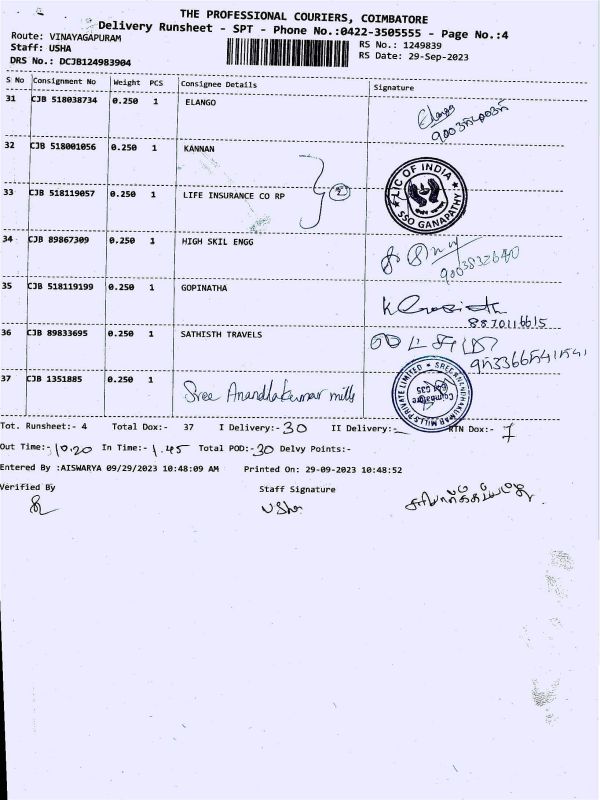 THE PROFESSIONAL COURIERS, COIMBATORE
Delivery Runsheet - SPT - Phone No.:0422-3505555 - Page No.:4
Route: VINAYAGAPURAM
Staff: USHA
DRS No.: DCJB124983904
RS No.: 1249839
RS Date: 29-Sep-2023
S No Consignment No Weight PCS Consignee Details Signature
31 CJB 518038734 0.250 1 ELANGO
Elango
32 CJB 518001056 0.250 1 KANNAN
33 CJB 518119057 0.250 1 LIFE INSURANCE CO RP
2
LIC OF INDIA
SSO GANAPATHY
34 CJB 89867309 0.250 1 HIGH SKIL ENGG
9003832640
35 CJB 518119199 0.250 1 GOPINATHA
8870116615
36 CJB 89833695 0.250 1 SATHISTH TRAVELS
37 CJB 1351885 0.250 1 Sree Anandhakumar mills
SREE ANANDHAKUMAR MILLS PRIVATE LIMITED
Coimbatore
641 035
Tot. Runsheet:- 4 Total Dox:- 37 I Delivery:- 30 II Delivery:- RTN Dox:- 7
Out Time:- 10.20 In Time:- 1.45 Total POD:- 30 Delvy Points:-
Entered By :AISWARYA 09/29/2023 10:48:09 AM Printed On: 29-09-2023 10:48:52
Verified By Staff Signature
Usha